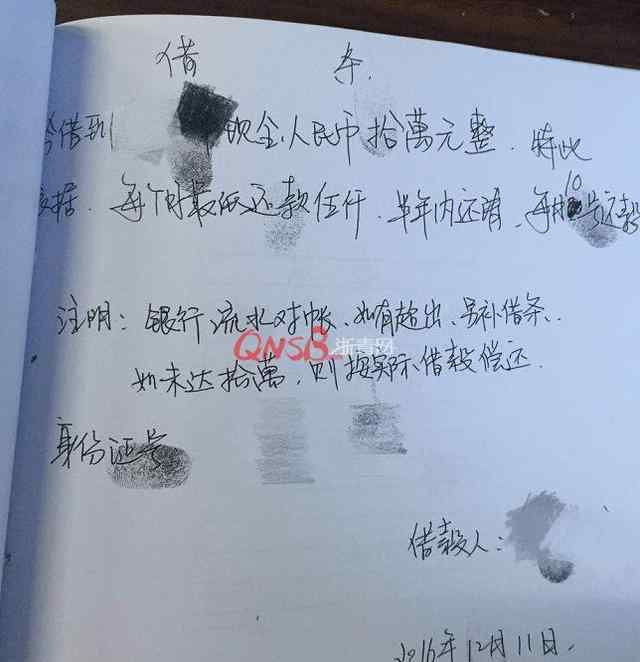 借 条.
今借到 现金.人民币拾萬元整. 特此
立据. 每个月最低还款伍仟. 半年内还清、每月10号还款
注明: 银行流水对帐、如有超出、另补借条、
QNSB 浙青网
如未达拾萬, 则按实际借款偿还.
身份证号
借款人:
2016年12月11日.